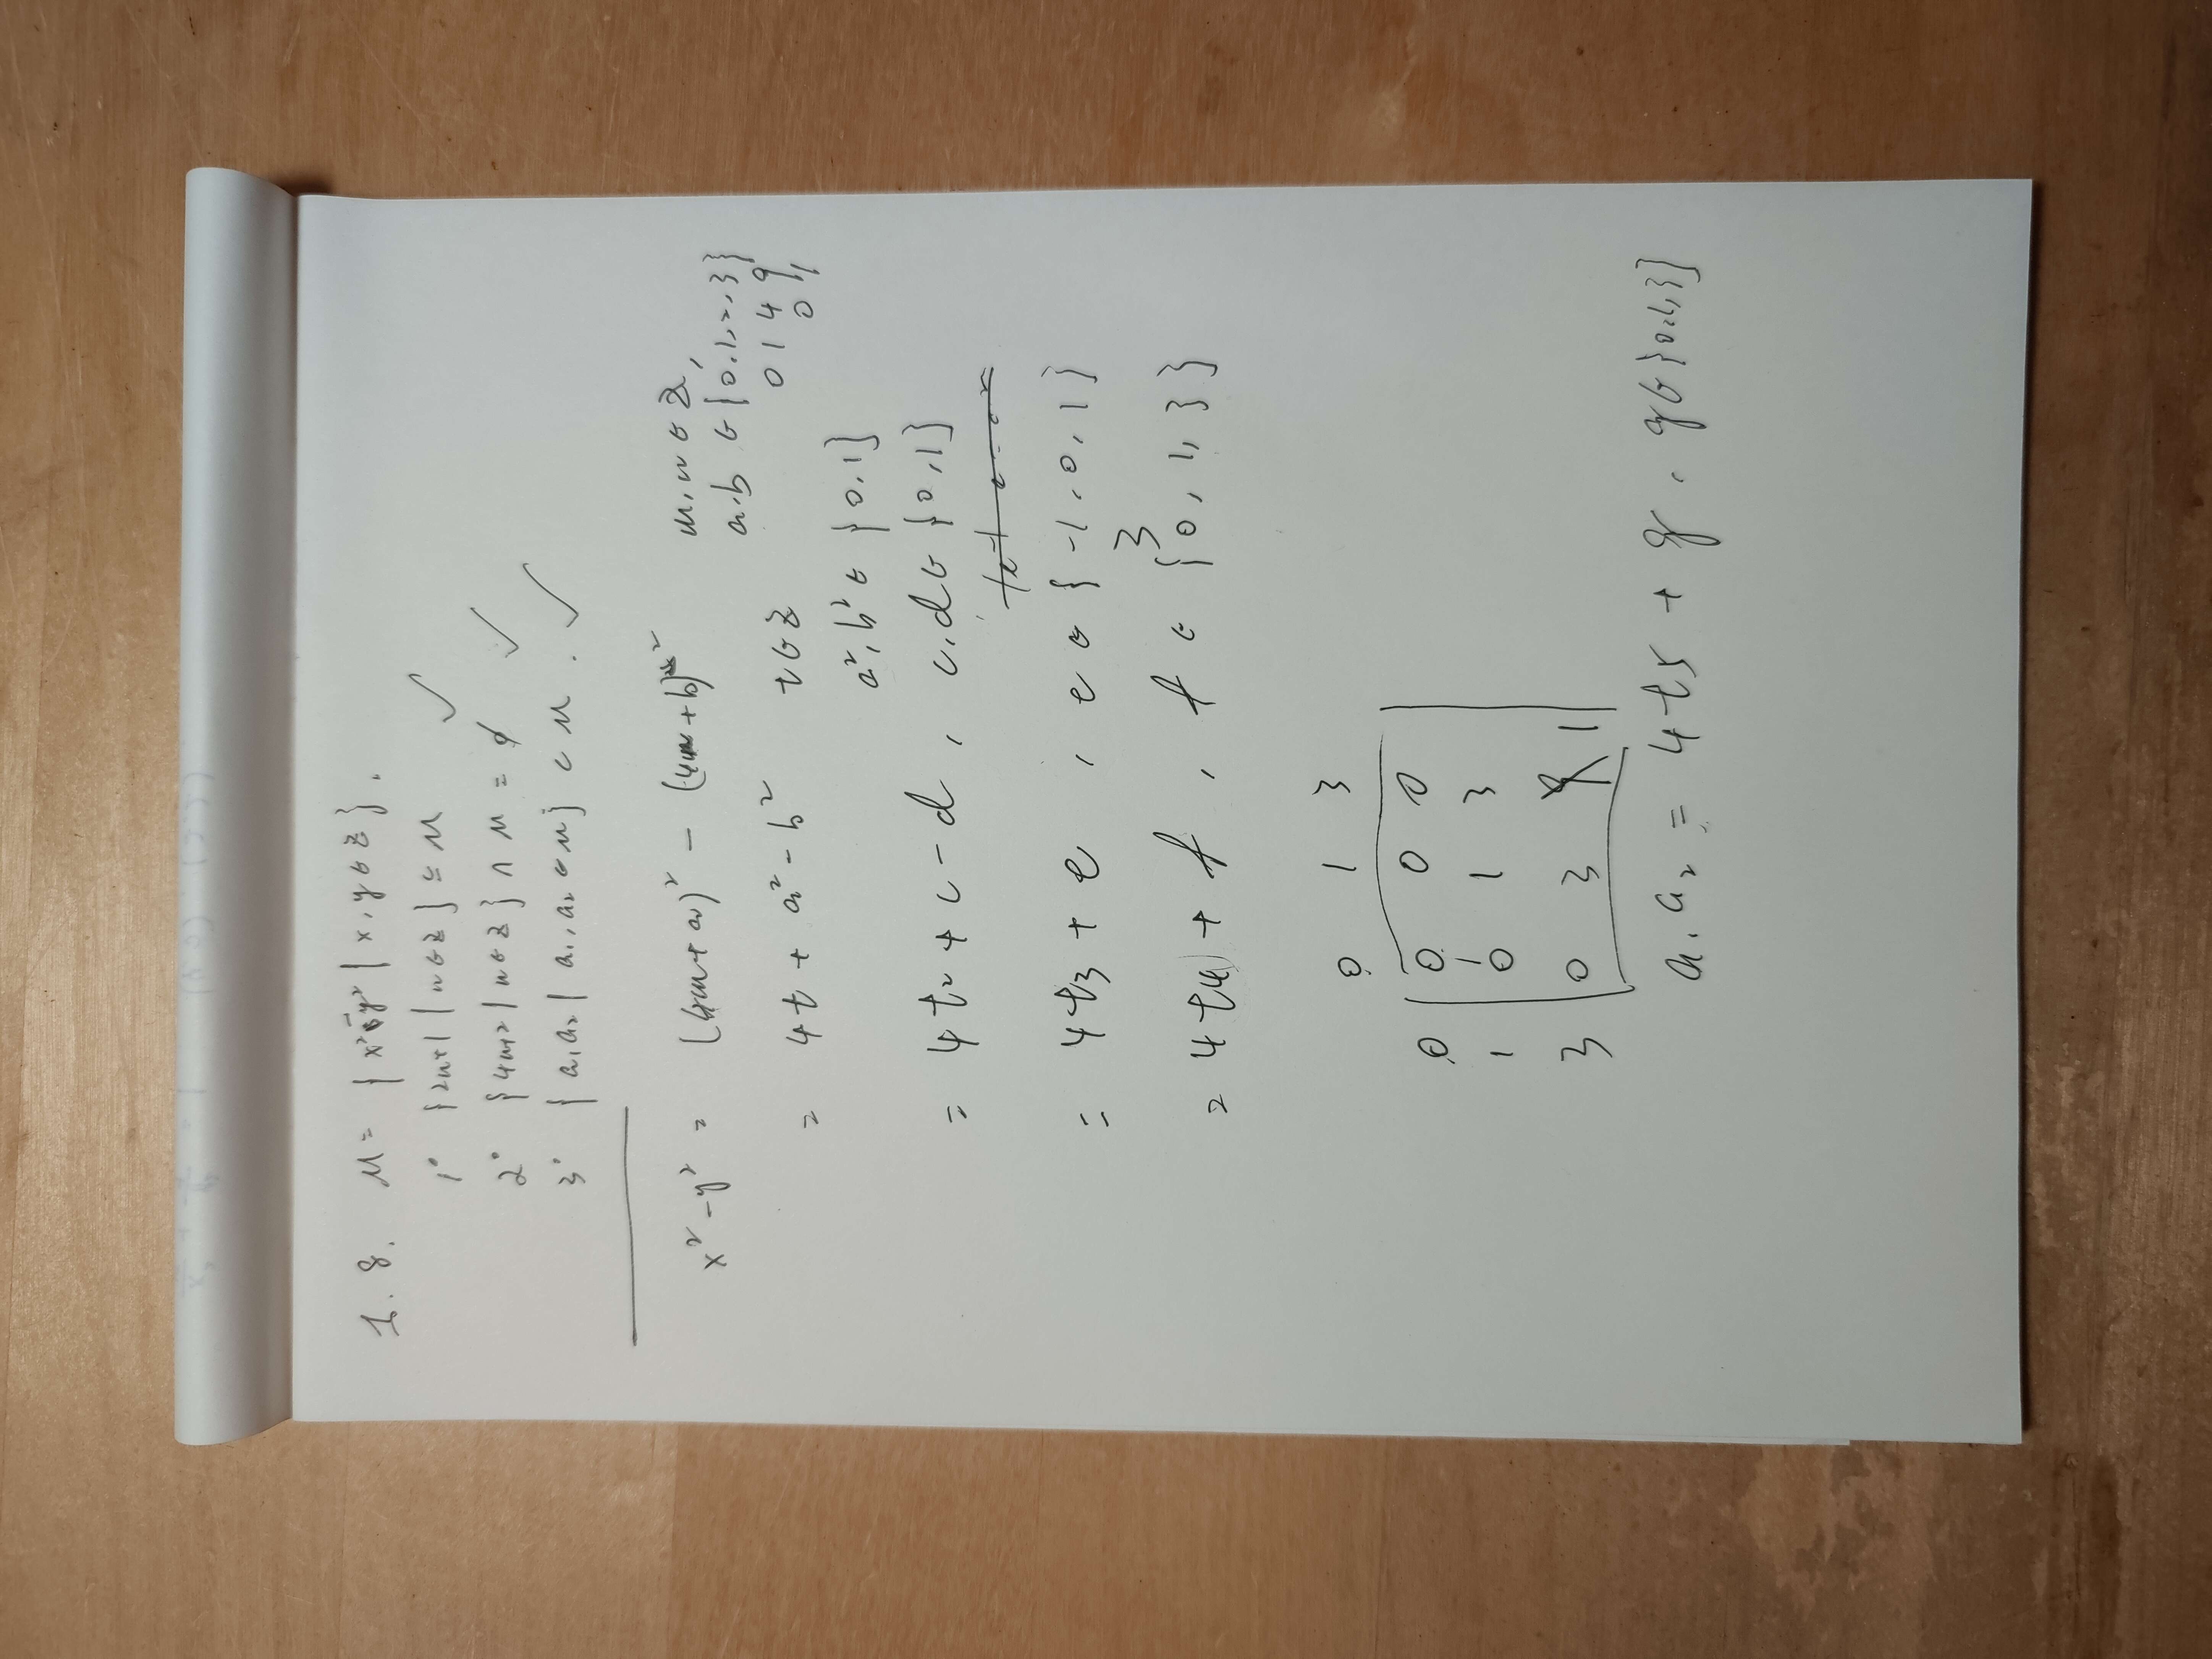 1.8. M = { x² - y² | x, y ∈ Z }.
1° {2n+1 | n ∈ Z} ⊆ M ✓
2° {4n+2 | n ∈ Z} ∩ M = ∅ ✓
3° { a₁a₂ | a₁, a₂ ∈ M } ⊂ M . ✓
x² - y² = (4m + a)² - (4n + b)² m, n ∈ Z,
a, b ∈ {0, 1, 2, 3}
0 1 4 9
0 1
= 4t + a² - b² t ∈ Z
a², b² ∈ {0, 1}
= 4t₂ + c - d , c, d ∈ {0, 1}
= 4t₃ + e , e ∈ {-1, 0, 1}
3
= 4t₄ + f , f ∈ {0, 1, 3}
0 1 3
0 0 0 0
1 0 1 3
3 0 3 9 1
a₁a₂ = 4t₅ + g , g ∈ {0, 1, 3}